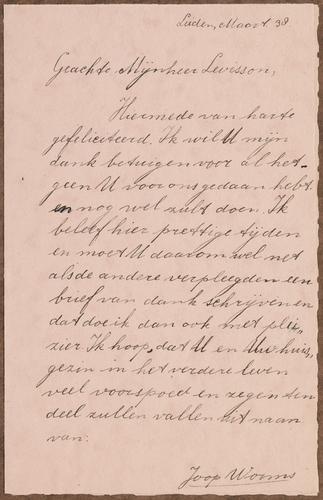 Leiden, Maart 38
Geachte Mijnheer Levisson,
Hiermede van harte
gefeliciteerd. Ik wil U mijn
dank betuigen voor al het-
geen U voor ons gedaan hebt
en nog wel zult doen. Ik
beleef hier prettige tijden
en moet U daarom wel net
als de andere verpleegden een
brief van dank schrijven en
dat doe ik dan ook met ple-
zier. Ik hoop, dat U en Uw huis-
gezin in het verdere leven
veel voorspoed en zegen ten
deel zullen vallen uit naam
van:
Joop Worms